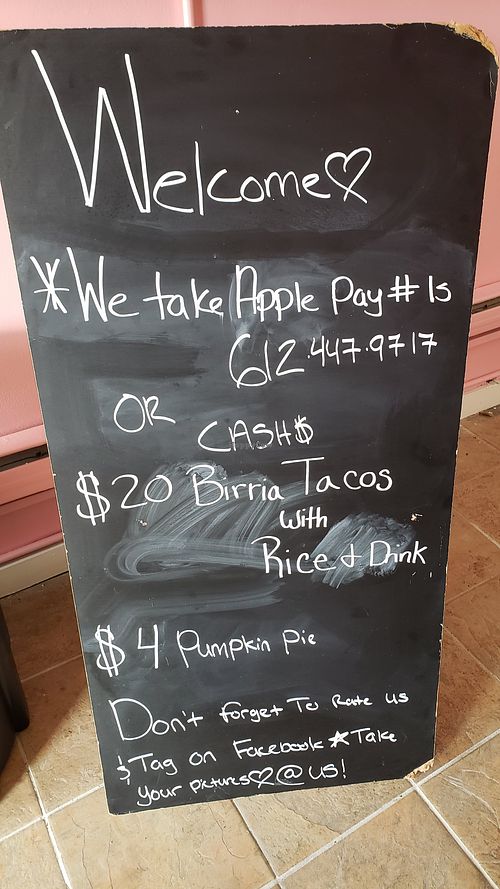 Welcome♡
*We take Apple Pay # Is
612.447.9717
OR
CASH$
$20 Birria Tacos
with
Rice & Drink
$4 Pumpkin Pie
Don't forget To Rate us
& Tag on Facebook ☆Take
your pictures♡@us!